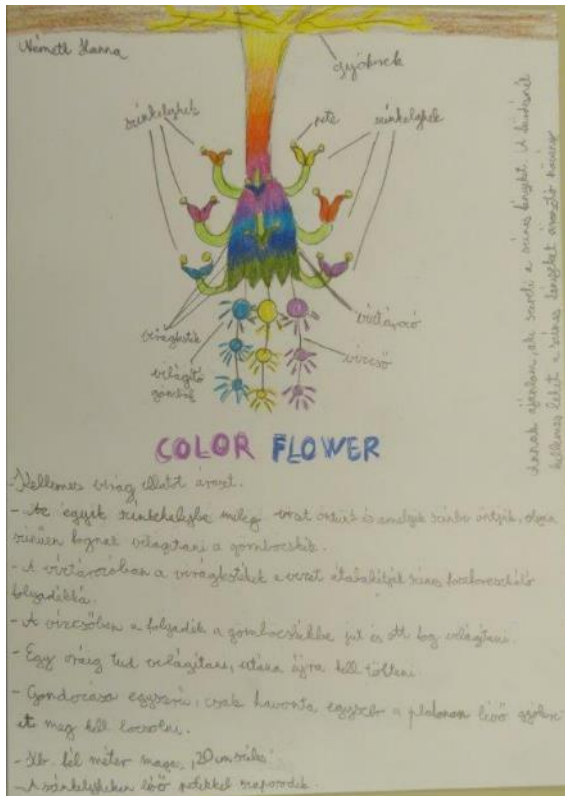 Németh Hanna
gyökerek
színkelyhek
pete
színkelyhek
víztározó
virágkoték
vízcső
világító
gombok
Annak ajánlom, aki szereti a színes fényket. A
kellemes lehet a színes fényeket árasztó növény
COLOR FLOWER
- Kellemes virág illatot áraszt.
- Az egyik színkehelybe meleg vizet öntünk és amelyik színbe öntjük, olyan
színűen fognak világítani a gömböcskék.
- A víztározóban a virágkoték a vizet átalakítják színes foszforeszkáló
folyadékká.
- A vízcsőben a folyadék a gömböcskékbe jut és ott fog világítani.
- Egy óráig tud világítani, utána újra kell tölteni.
- Gondozása egyszerű, csak havonta egyszer a plafonon lévő gyökere-
it meg kell locsolni.
- Kb. fél méter magas, 20 cm széles.
- A színkelyheken lévő petékkel szaporodik.